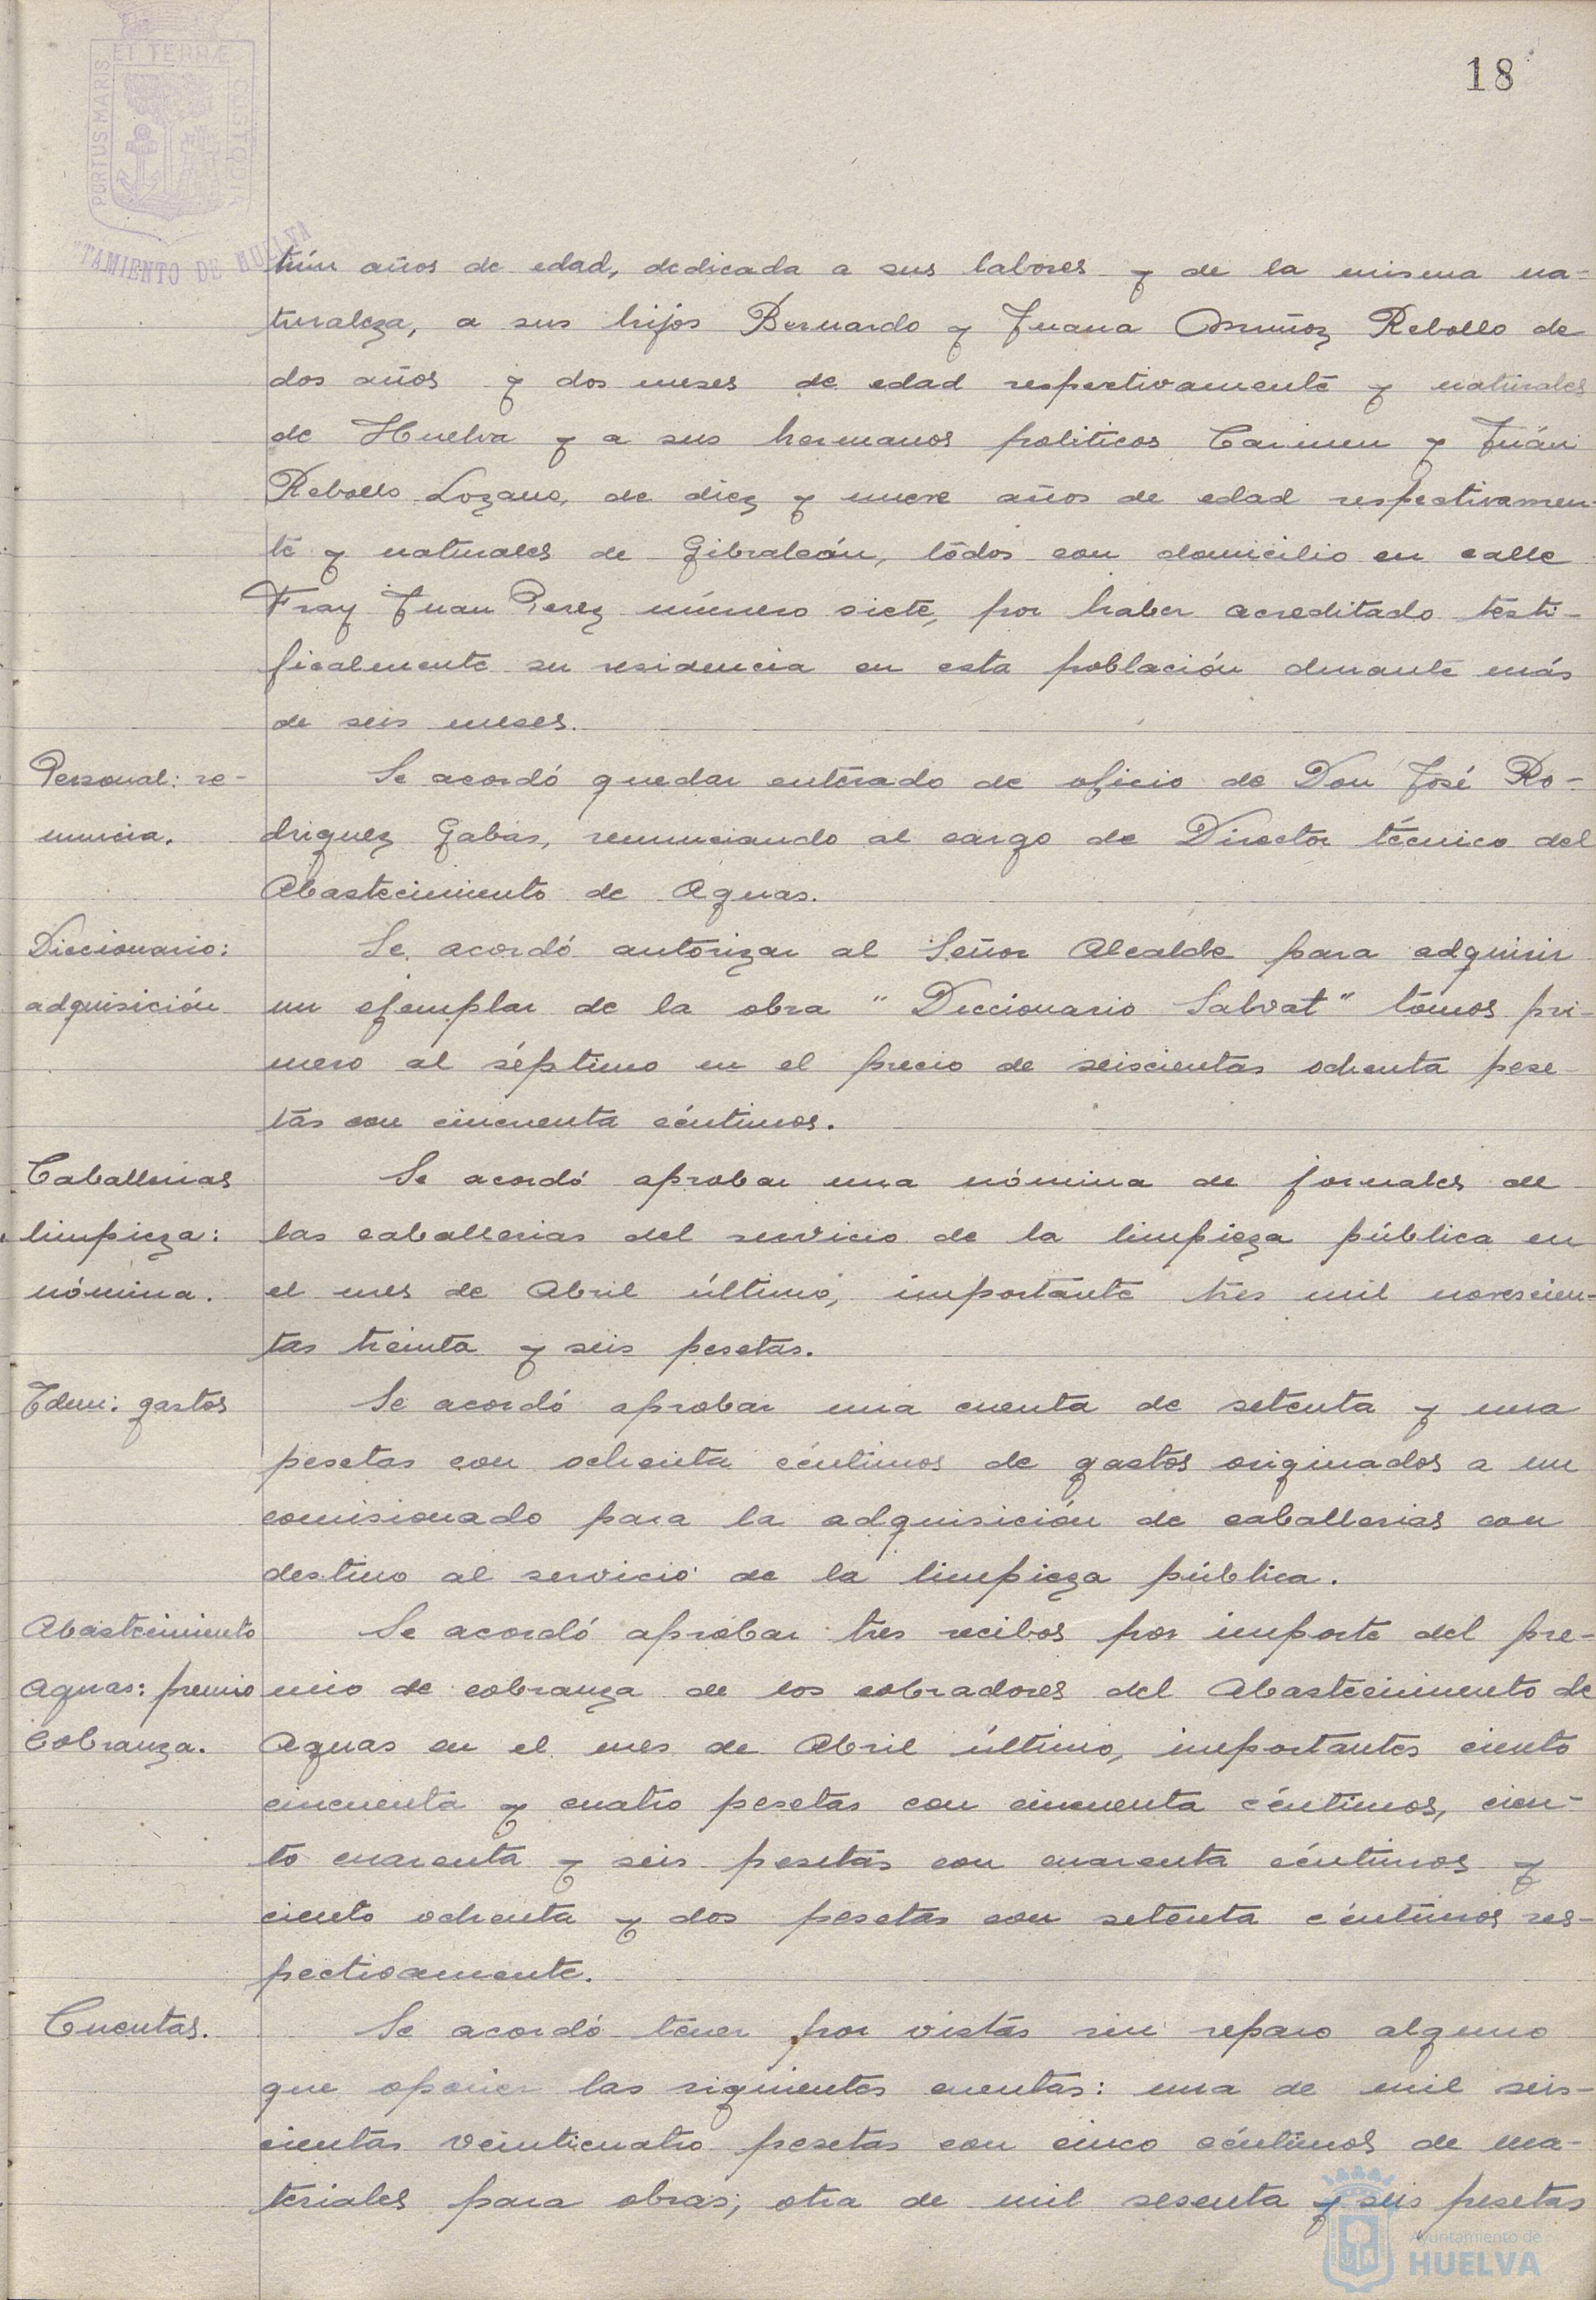 18
PORTUS MARIS ET TERRÆ CUSTODIA
TAMIENTO DE HUELVA
tiún años de edad, dedicada a sus labores y de la misma na-
turaleza, a sus hijos Bernardo y Juana Muñoz Rebollo de
dos años y dos meses de edad respectivamente y naturales
de Huelva y a sus hermanos politicos Carmen y Juán
Rebollo Lozano, de diez y nueve años de edad respectivamen-
te y naturales de Gibraleón, todos con domicilio en calle
Fray Juan Perez número siete, por haber acreditado testi-
ficalmente su residencia en esta población durante más
de seis meses.
Personal: re-
nuncia.
Se acordó quedar enterado de oficio de Don José Ro-
driguez Gabás, renunciando al cargo de Director técnico del
Abastecimiento de Aguas.
Diccionario:
adquisición
Se acordó autorizar al Señor Alcalde para adquirir
un ejemplar de la obra "Diccionario Salvat" tomos pri-
mero al séptimo en el precio de seiscientas ochenta pese-
tas con cincuenta céntimos.
Caballerias
limpieza:
nómina.
Se acordó aprobar una nómina de jornales de
las caballerias del servicio de la limpieza pública en
el mes de Abril último, importante tres mil novescien-
tas treinta y seis pesetas.
Idem: gastos
Se acordó aprobar una cuenta de setenta y una
pesetas con ochenta céntimos de gastos originados a un
comisionado para la adquisición de caballerias con
destino al servicio de la limpieza pública.
Abastecimiento
Aguas: premio
Cobranza.
Se acordó aprobar tres recibos por importe del pre-
mio de cobranza de los cobradores del Abastecimiento de
Aguas en el mes de Abril último, importantes ciento
cincuenta y cuatro pesetas con cincuenta céntimos, cien-
to cuarenta y seis pesetas con cuarenta céntimos y
ciento ochenta y dos pesetas con setenta céntimos res-
pectivamente.
Cuentas.
Se acordó tener por vistas sin reparo alguno
que oponer las siguientes cuentas: una de mil seis-
cientas veinticuatro pesetas con cinco céntimos de ma-
teriales para obras; otra de mil sesenta y seis pesetas
Ayuntamiento de
HUELVA